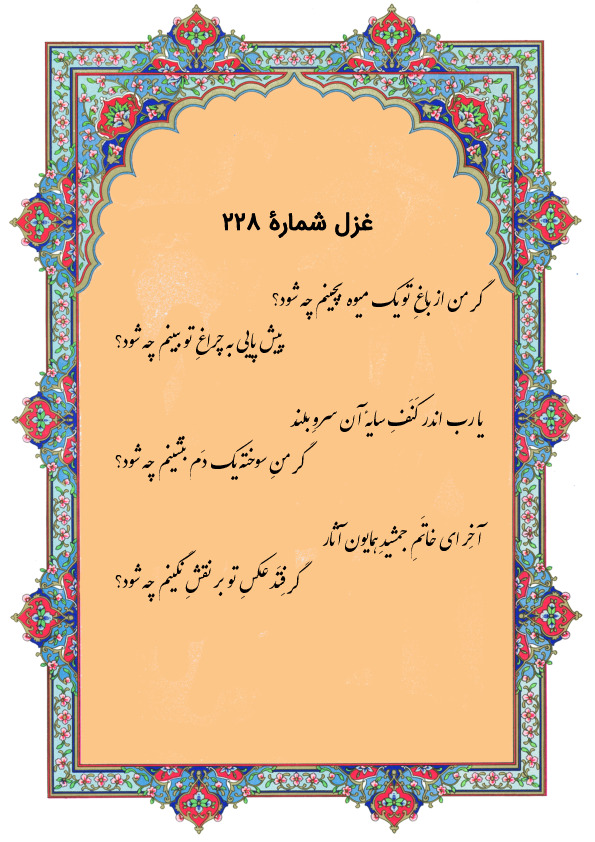 غزل شمارهٔ ۲۲۸
گر من از باغِ تو یک میوه بچینم چه شود؟
پیش پایی به چراغِ تو ببینم چه شود؟
یا رب اندر کَنَفِ سایهٔ آن سروِ بلند
گر منِ سوخته یک دَم بنشینم چه شود؟
آخر ای خاتَمِ جمشیدِ همایون آثار
گر فِتَد عکسِ تو بر نقشِ نگینم چه شود؟